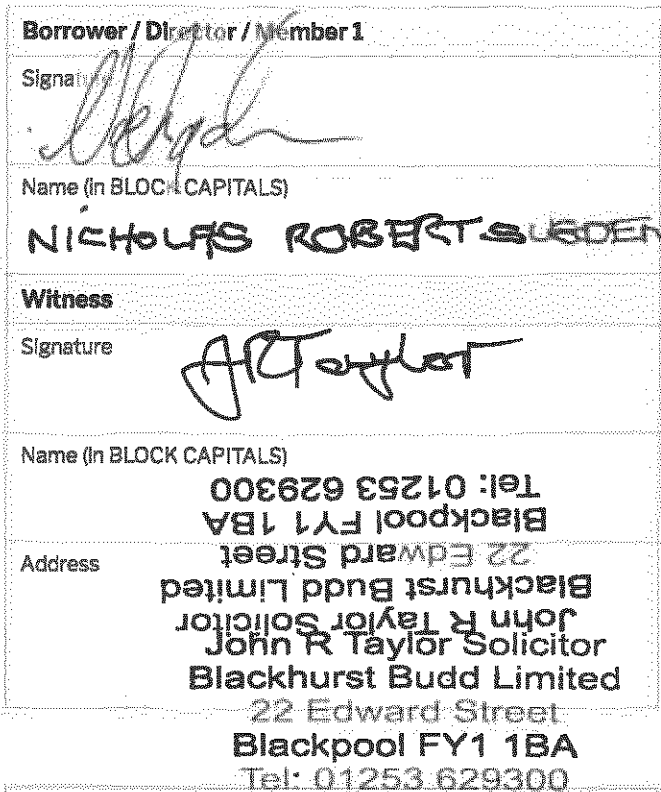 Borrower / Director / Member 1
Signature
Name (in BLOCK CAPITALS)
NICHOLAS ROBERT SUGDEN
Witness
Signature
JRTaylor
Name (in BLOCK CAPITALS)
Tel: 01253 629300
Blackpool FY1 1BA
22 Edward Street
Address
Blackhurst Budd Limited
John R Taylor Solicitor
John R Taylor Solicitor
Blackhurst Budd Limited
22 Edward Street
Blackpool FY1 1BA
Tel: 01253 629300